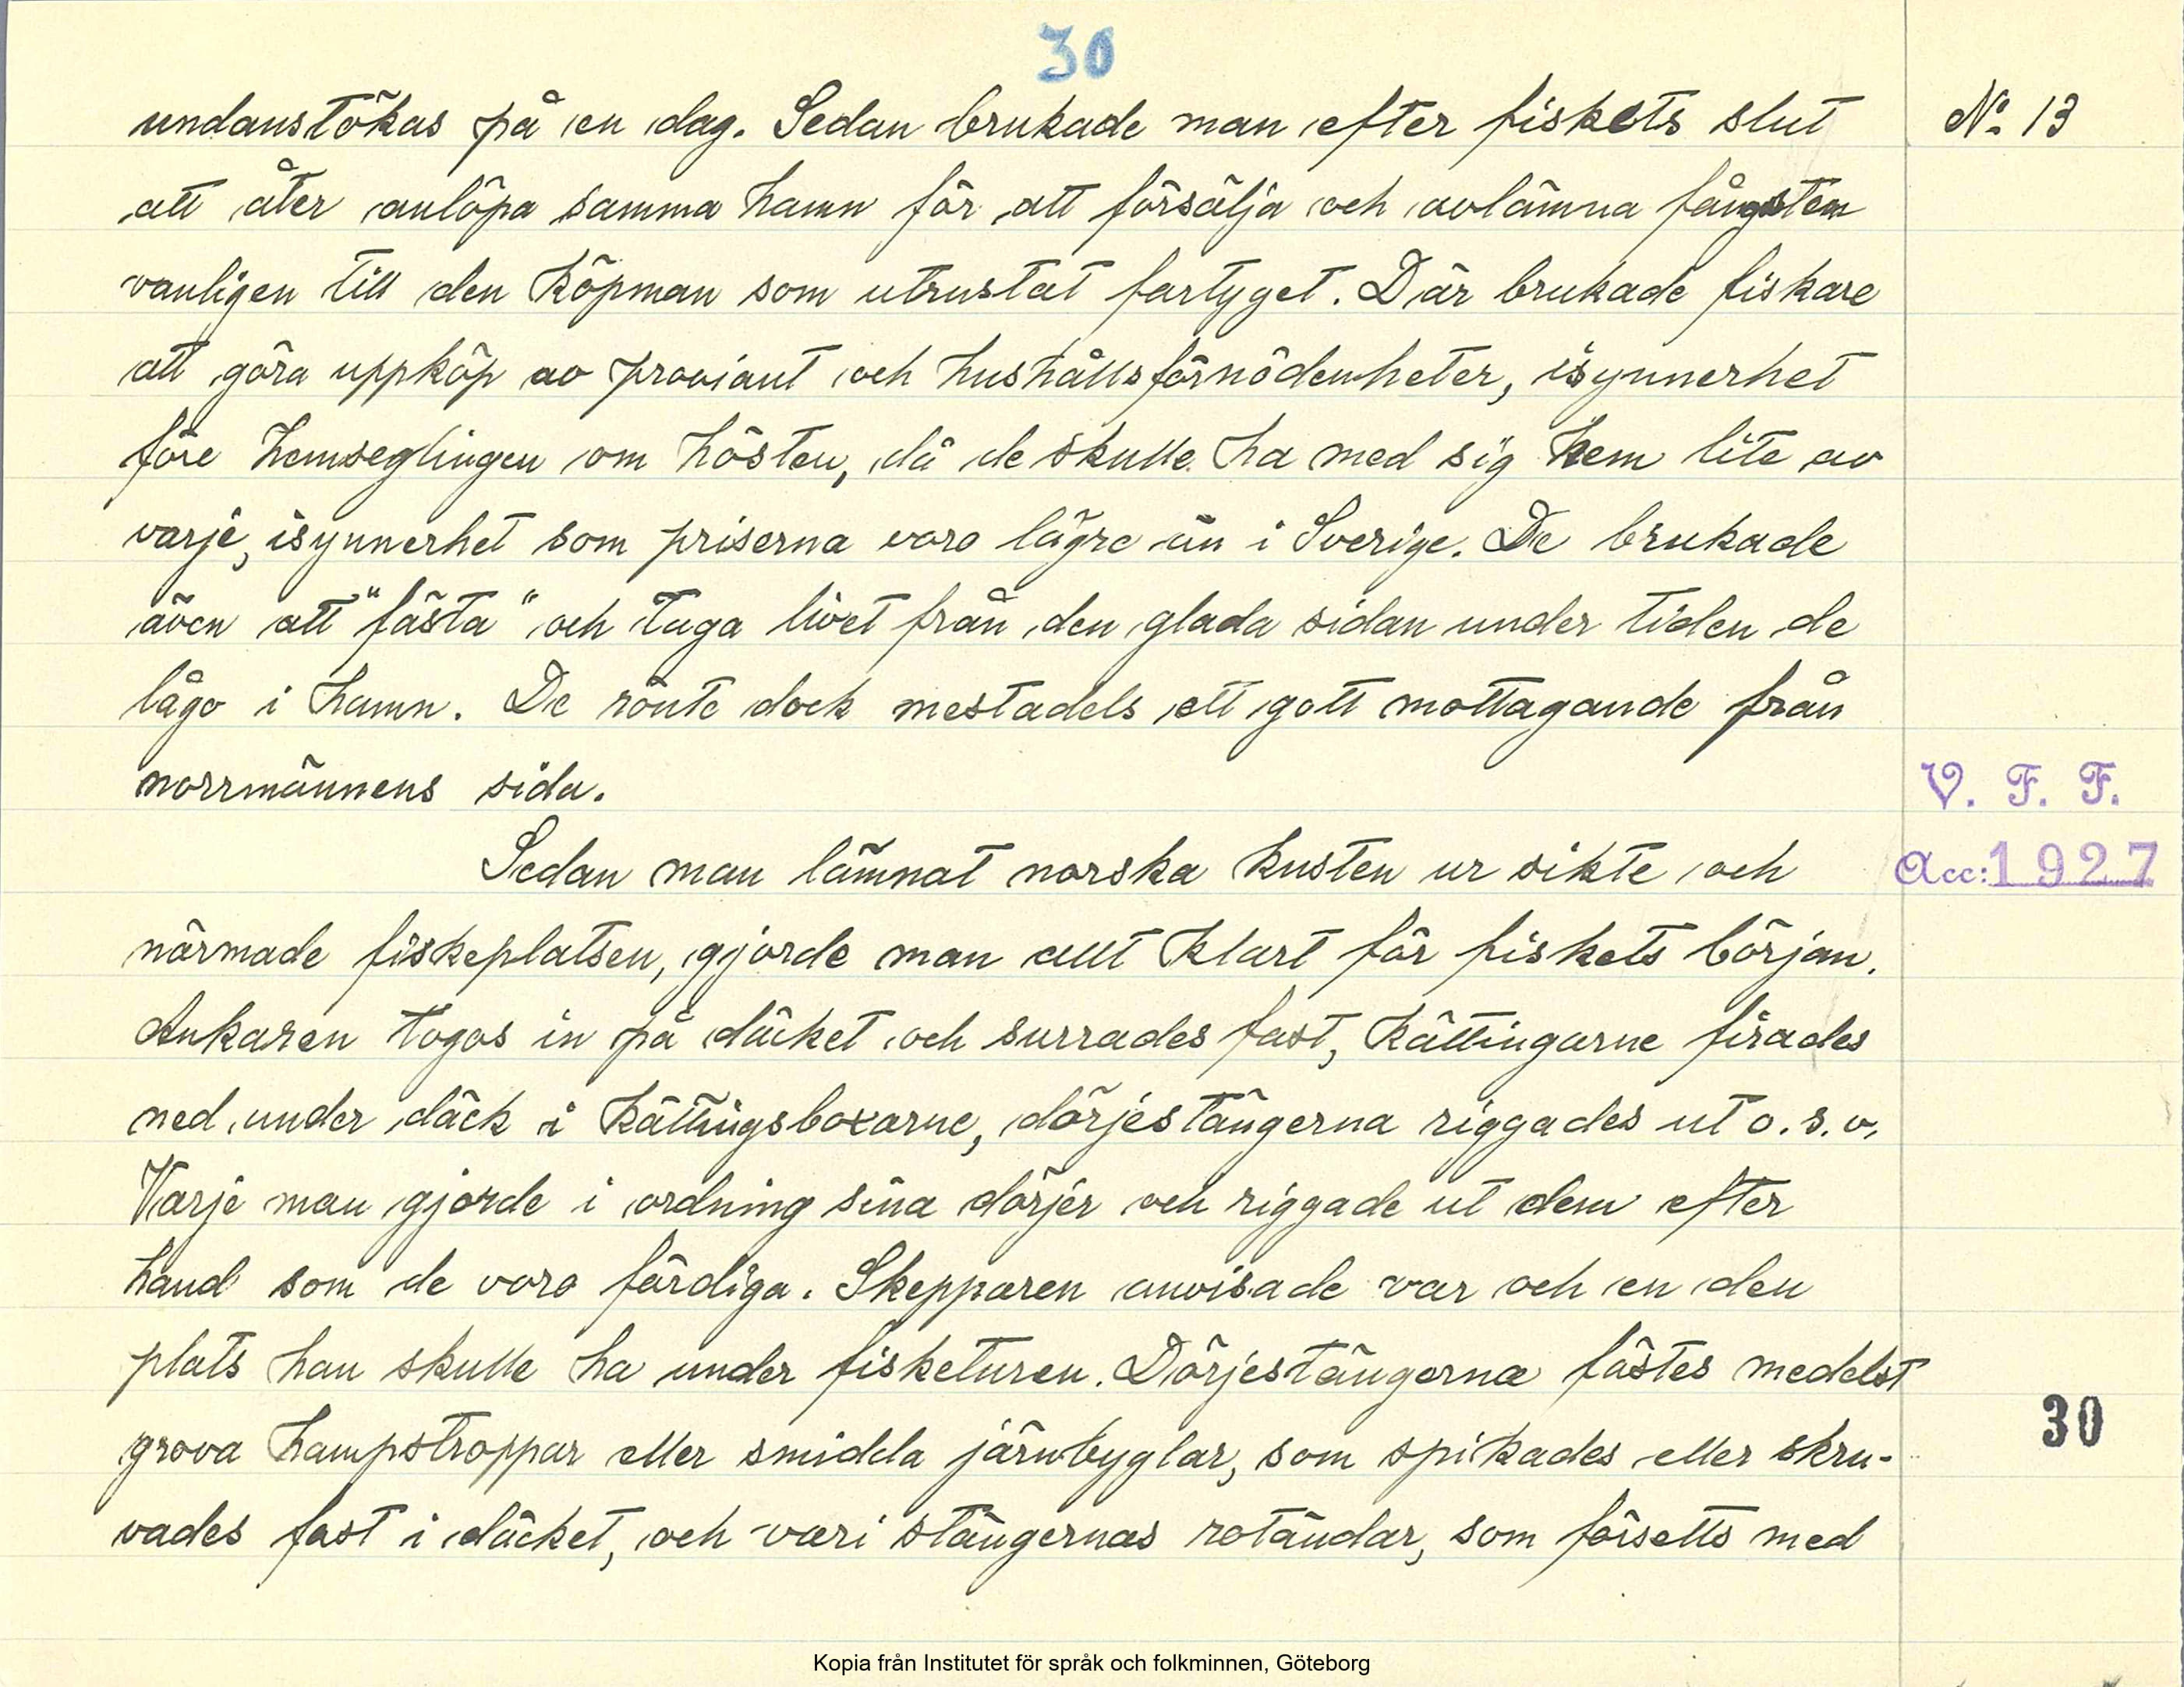 30
undanstökas på en dag. Sedan brukade man efter fiskets slut
att åter anlöpa samma hamn för att försälja och avlämna fångsten
vanligen till den köpman som utrustat fartyget. Där brukade fiskare
att göra uppköp av proviant och hushållsförnödenheter, isynnerhet
före hemseglingen om hösten, då de skulle ha med sig hem lite av
varje, isynnerhet som priserna voro lägre än i Sverige. De brukade
även att "fästa" och taga livet från den glada sidan under tiden de
lågo i hamn. De rönte dock mestadels ett gott mottagande från
norrmännens sida.
Sedan man lämnat norska kusten ur sikte och
närmade fiskeplatsen, gjorde man allt klart för fiskets början.
Ankaren togos in på däcket och surrades fast, kättingarne firades
ned under däck i kättingsboxarne, dörjestängerna riggades ut o.s.v.
Varje man gjorde i ordning sina dörjer och riggade ut dem efter
hand som de voro färdiga. Skepparen anvisade var och en den
plats han skulle ha under fisketuren. Dörjestängerna fästes medelst
grova hampstroppar eller smidda järnbyglar, som spikades eller skru-
vades fast i däcket, och vari stängernas rotändar, som försetts med
No 13
V. F. F.
Acc: 1927
30
Kopia från Institutet för språk och folkminnen, Göteborg